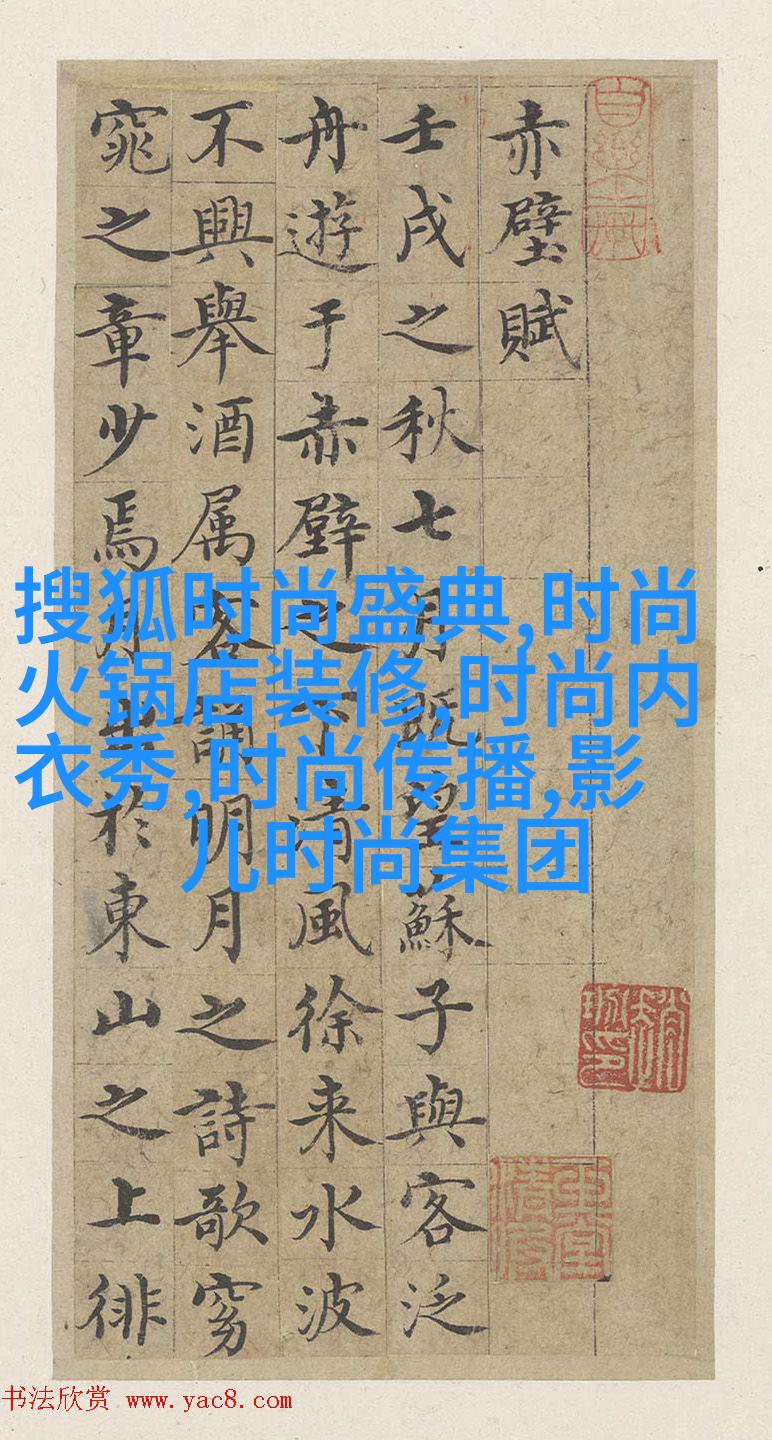 赤壁賦
壬戌之秋七月既望蘇子與客泛
舟遊于赤壁之下清風徐来水波
不興舉酒属客誦明月之詩歌窈
窕之章少焉月出於東山之上徘
搜狐时尚盛典,时尚
火锅店装修,时尚内
衣秀,时尚传播,影
儿时尚集团
书法欣赏 www.yac8.com